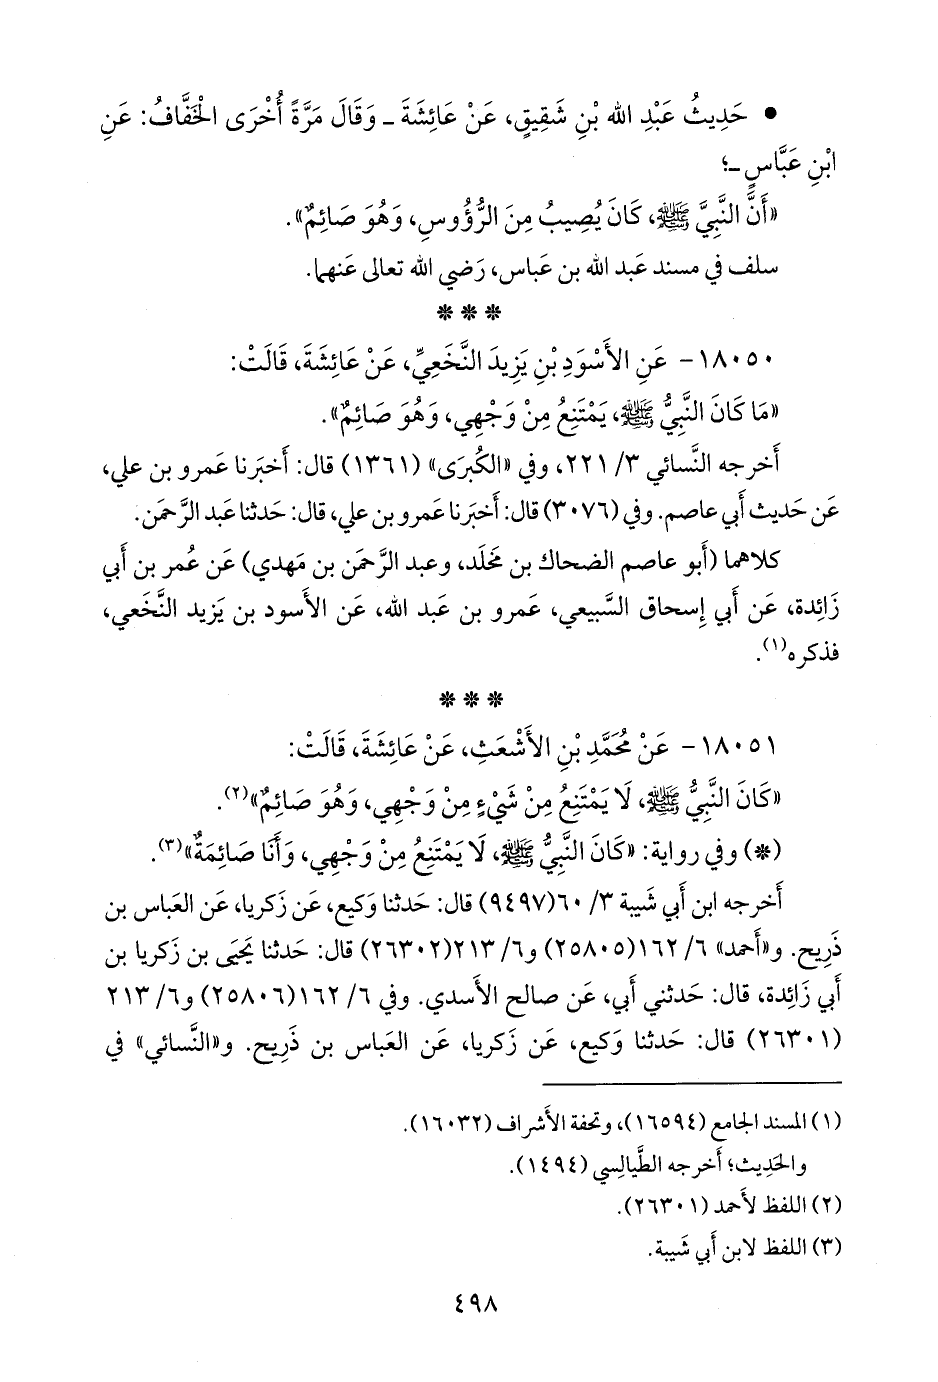 • حَدِيثُ عَبْدِ الله بْنِ شَقِيقٍ، عَنْ عَائِشَةَ ـ وَقَالَ مَرَّةً أُخْرَى الْخَفَّافُ: عَنِ
ابْنِ عَبَّاسٍ ـ؛
«أَنَّ النَّبِيَّ ﷺ، كَانَ يُصِيبُ مِنَ الرُّؤُوسِ، وَهُوَ صَائِمٌ».
سلف في مسند عَبد الله بن عَباس، رَضي الله تعالى عَنهما.
❊ ❊ ❊
١٨٠٥٠- عَنِ الأَسْوَدِ بْنِ يَزِيدَ النَّخَعِيِّ، عَنْ عَائِشَةَ، قَالَتْ:
«مَا كَانَ النَّبِيُّ ﷺ، يَمْتَنِعُ مِنْ وَجْهِي، وَهُوَ صَائِمٌ».
أَخرجه النَّسائي ٣/ ٢٢١، وفي «الكُبرَى» (١٣٦١) قال: أَخبَرنا عَمرو بن علي،
عَن حَديث أَبي عاصم. وفي (٣٠٧٦) قال: أَخبَرنا عَمرو بن علي، قال: حَدثنا عَبد الرَّحمَن.
كلاهما (أَبو عاصم الضحاك بن مَخلَد، وعبد الرَّحمَن بن مَهدي) عَن عُمر بن أَبي
زَائِدة، عَن أَبي إِسحاق السَّبيعي، عَمرو بن عَبد الله، عَن الأَسود بن يَزيد النَّخَعي،
فذكره(١).
❊ ❊ ❊
١٨٠٥١- عَنْ مُحَمَّدِ بْنِ الأَشْعَثِ، عَنْ عَائِشَةَ، قَالَتْ:
«كَانَ النَّبِيُّ ﷺ، لَا يَمْتَنِعُ مِنْ شَيْءٍ مِنْ وَجْهِي، وَهُوَ صَائِمٌ»(٢).
(❊) وفي رواية: «كَانَ النَّبِيُّ ﷺ، لَا يَمْتَنِعُ مِنْ وَجْهِي، وَأَنَا صَائِمَةٌ»(٣).
أَخرجه ابن أَبي شَيبة ٣/ ٦٠(٩٤٩٧) قال: حَدثنا وَكيع، عَن زَكريا، عَن العَباس بن
ذَرِيح. و«أَحمد» ٦/ ١٦٢(٢٥٨٠٥) و٦/ ٢١٣(٢٦٣٠٢) قال: حَدثنا يَحيَى بن زَكريا بن
أَبي زَائِدة، قال: حَدثني أَبي، عَن صالح الأَسدي. وفي ٦/ ١٦٢(٢٥٨٠٦) و٦/ ٢١٣
(٢٦٣٠١) قال: حَدثنا وَكيع، عَن زَكريا، عَن العَباس بن ذَرِيح. و«النَّسائي» في
(١) المسند الجامع (١٦٥٩٤)، وتحفة الأَشراف (١٦٠٣٢).
والحَدِيث؛ أَخرجه الطَّيالِسي (١٤٩٤).
(٢) اللفظ لأَحمد (٢٦٣٠١).
(٣) اللفظ لابن أَبي شَيبة.
٤٩٨